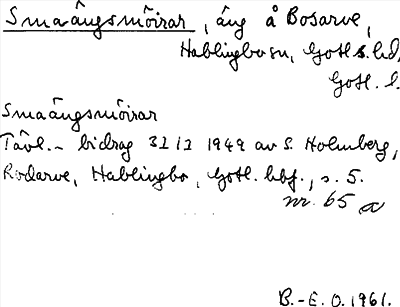 Smaângsmôirar, âng å Bosarve,
Hablingbo sn, Gotl. s. hd,
Gotl. l.
Smaângsmôirar
Tävl.- bidrag 31 12 1949 av S. Holmberg,
Rodarve, Hablingbo, Gotl. hbf., s. 5.
nr. 65 a
B.-E. O. 1961.